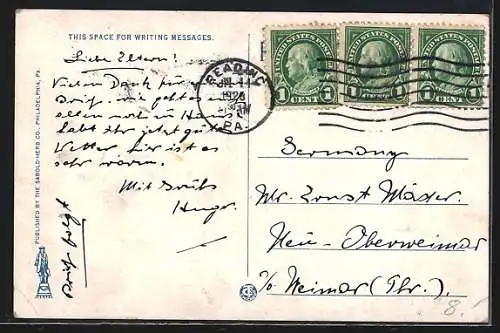 THIS SPACE FOR WRITING MESSAGES.
Liebe Eltern!
Vielen Dank für
Brief. wie geht es
allen noch zu Haus
habt ihr jetzt gutes
Wetter hier ist es
sehr warm.
Mit Gruß
Hugo.
Brief folgt
PUBLISHED BY THE SABOLD-HERB CO., PHILADELPHIA, PA.
READING
1926
PA.
UNITED STATES POSTAGE
1 CENT 1
UNITED STATES POSTAGE
1 CENT 1
UNITED STATES POSTAGE
1 CENT 1
Germany
Mr. Ernst Mäder.
Neu-Oberweimar
b/ Weimar (Thr.).
8.